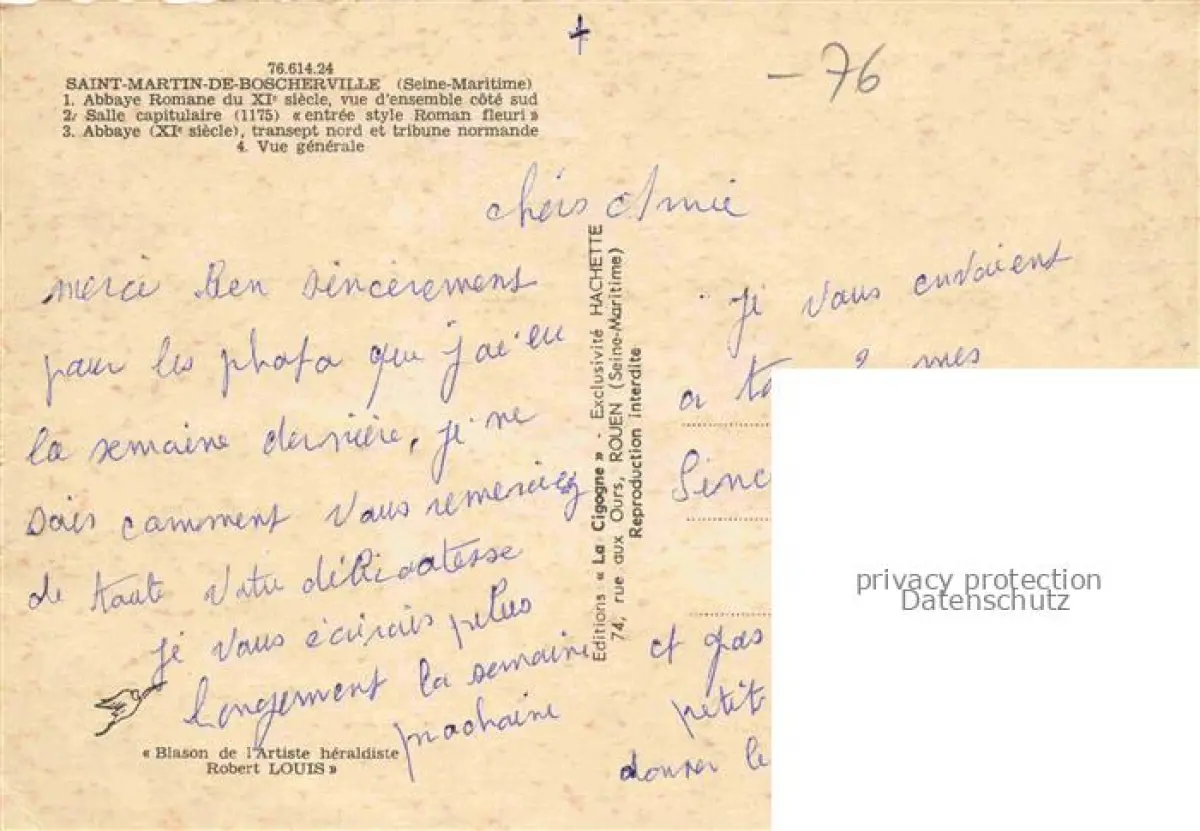 76.614.24
SAINT-MARTIN-DE-BOSCHERVILLE (Seine-Maritime)
1. Abbaye Romane du XIe siècle, vue d'ensemble côté sud
2. Salle capitulaire (1175) « entrée style Roman fleuri »
3. Abbaye (XIe siècle), transept nord et tribune normande
4. Vue générale
- 76
chéis Amie
merci Ben sincèrement
pour les photo que j'ai eu
la semaine dernière, je ne
sais comment vous remerciez
de toute votre délicatesse
je vous écirais plus
longement la semaine
prochaine
« Blason de l'Artiste héraldiste
Robert LOUIS »
Editions « La Cigogne » - Exclusivité HACHETTE
74, rue aux Ours, ROUEN (Seine-Maritime)
Reproduction interdite
Je vous envoient
a mes
Sinc
et pas
petit
donner le
privacy protection
Datenschutz